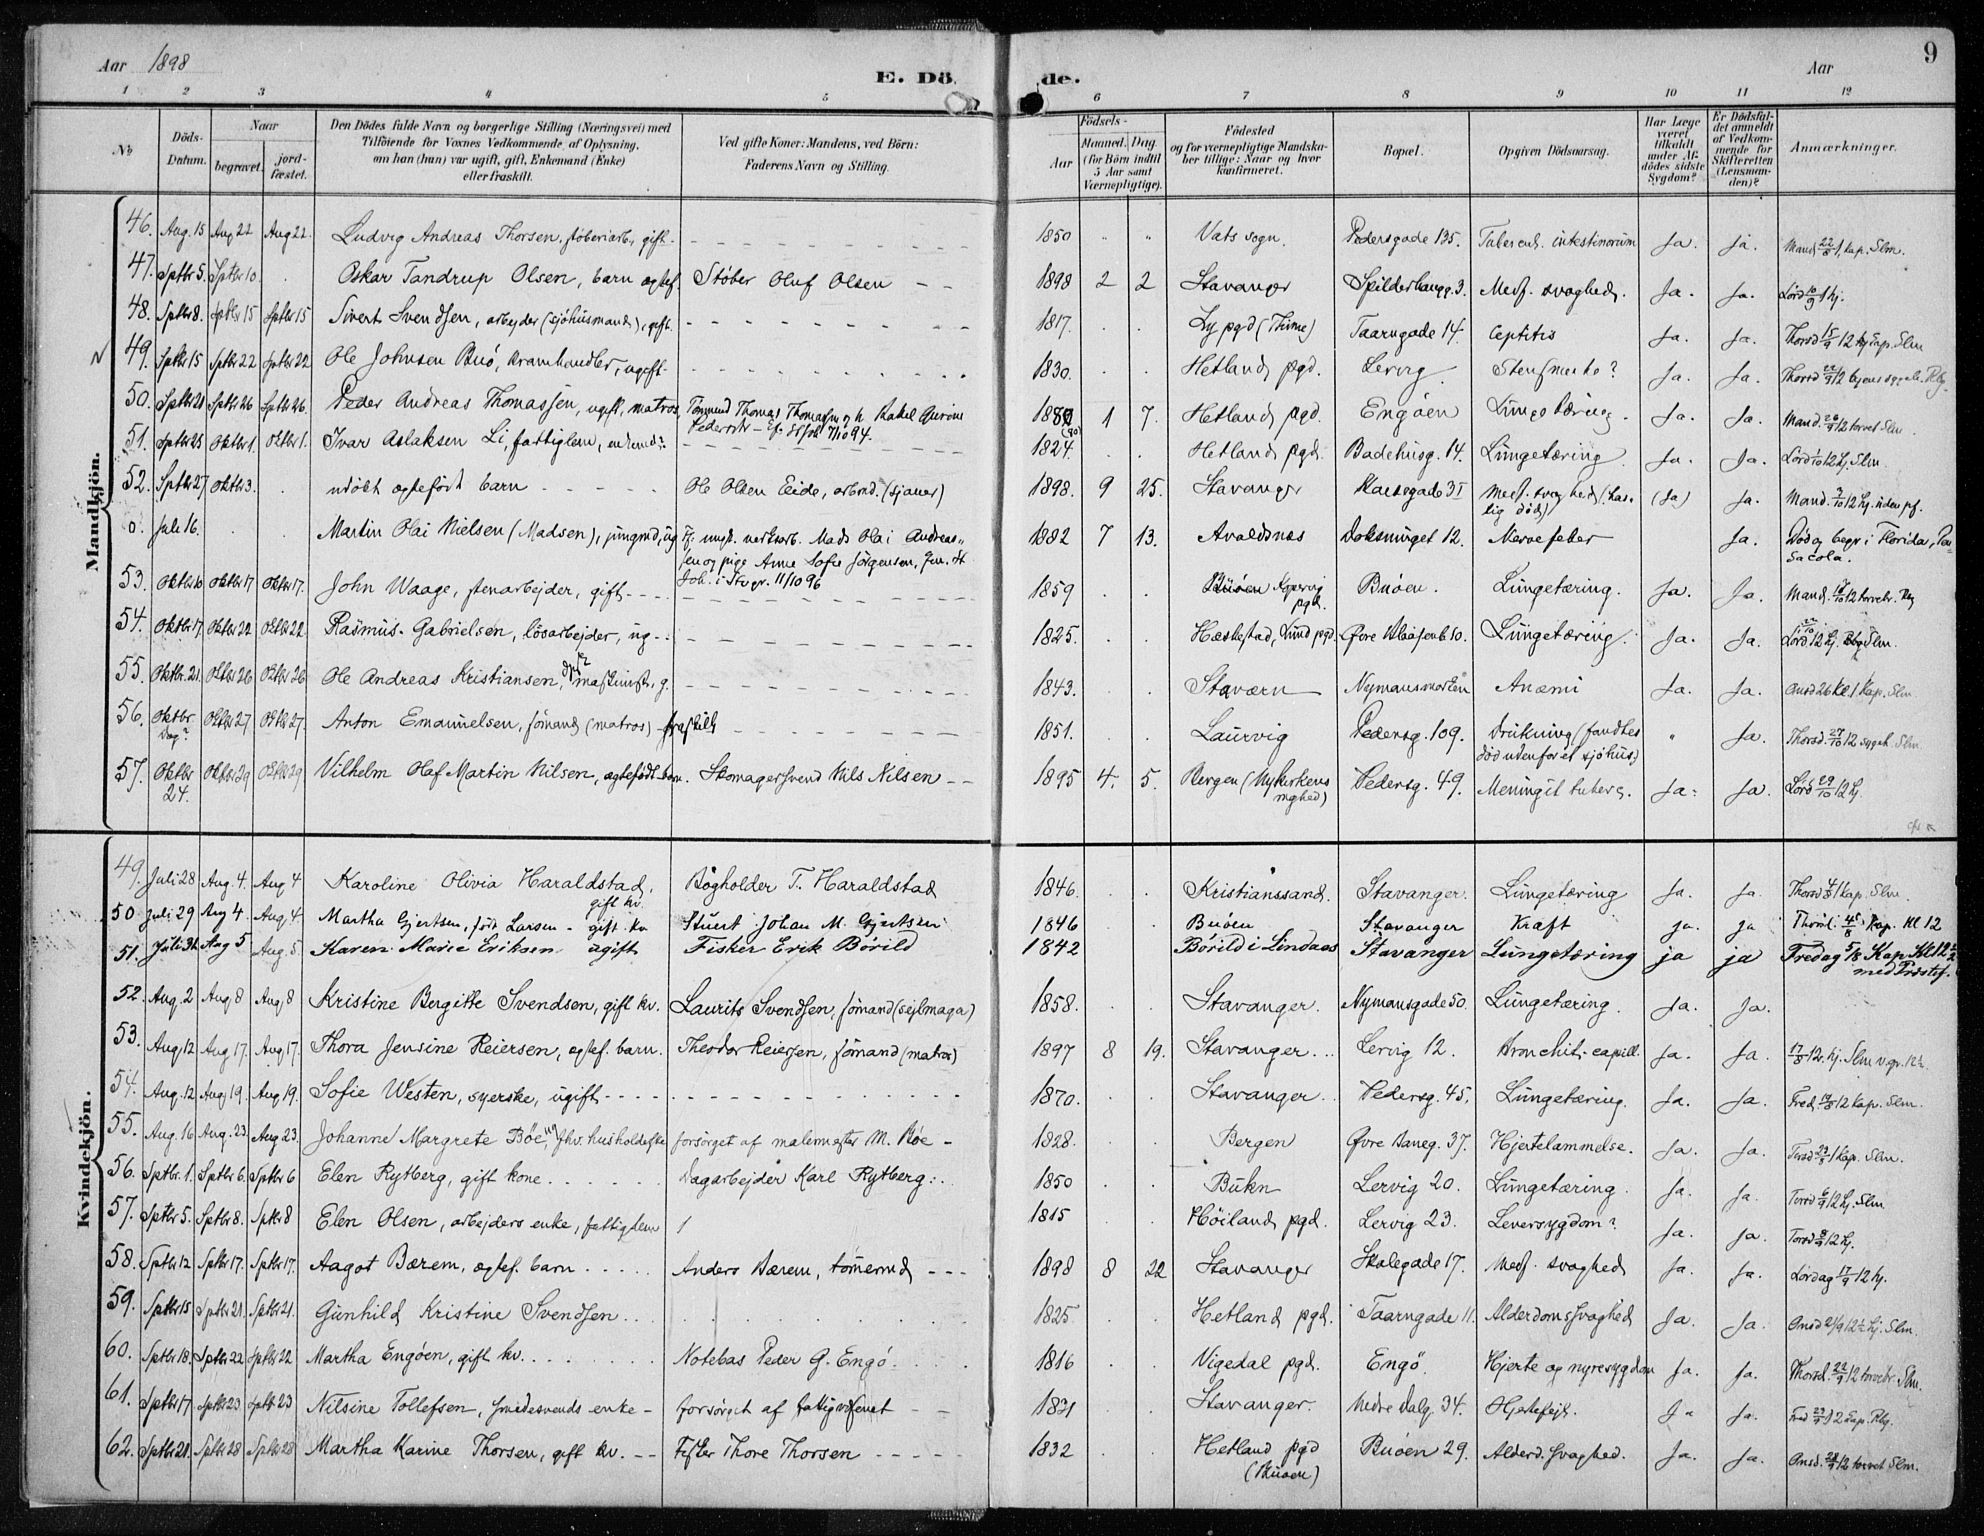 Aar 1898
E. Dö de.
Aar
9
1 2 3 4 5 6 7 8 9 10 11 12
No
Döds-Datum.
Naar
begravet.
jordfæstet.
Den Dödes fulde Navn og borgerlige Stilling (Næringsvei) med Tilföiende for Voxnes Vedkommende af Oplysning, om han (hun) var ugift, gift, Enkemand (Enke) eller fraskilt.
Ved gifte Koner: Mandens, ved Börn: Faderens Navn og Stilling.
Födsels-
Aar
Maaned. Dag.
(for Börn indtil 5 Aar samt Værnepligtige).
Födested og for værnepligtige Mandskaber tillige: Naar og hvor konfirmeret.
Bopæl.
Opgiven Dödsaarsag.
Har Læge været tilkaldt under Afdödes sidste Sygdom?
Er Dödsfaldet anmeldt af Vedkommende for Skifteretten (Lensmanden)?
Anmærkninger.
Mandkjön.
46. Aug. 15 Aug 22 Aug 22. Ludvig Andreas Thorsen, støberiarb., gift 1850 Vats sogn. Pedersgade 135. Tubercul. intestinorum Ja. Ja. Mand 22/8 1, kap. Slm.
47. Sptbr 5. Sptbr 10. Oskar Tandrup Olsen, barn ægtef. Støber Oluf Olsen 1898 2 2 Stavanger Spilderhaugg. 3. Medf. svaghed. Ja. Ja. Lörd 10/9 1 hj.
48. Sptbr 8. Sptbr 15 Sptbr 15 Sivert Svendsen, arbejder (sjöhusmand), gift. 1817. Ly pgd (Thime) Taarngade 14. Ja. Ja. Thorsd 15/9 12 Kap. Slm
49. Sptbr 15 Sptbr 22 Sptbr 22 Ole Johnsen Buö, kramhandler, ugift 1830. Hetland pgd. Lervig Ja. Ja. Thorsd 22/9 12
50. Sptbr 21 Sptbr 26 Sptbr 26. Peder Andreas Thomassen, ugift, matros, Tönnes Thomas Thomassen o. h. Rakel Gurine Pedersdtr 7/10 94. 1 7. Hetland pgd. Engöen Lungetæring. Ja. Ja. Mand. 26/9 12 torvet Slm.
51. Sptbr 25 Oktbr 1. Oktbr 1. Ivar Aslaksen Li, fattiglem, enkemd? 1824. Hetland pgd. Badehusg. 14. Lungetæring Ja. Ja. Lörd 1/10 12 hj. Slm.
52. Sptbr 27 Oktbr 3. udöbt ægtefödt barn Ole Olsen Eide, arbmd. (sjauer) 1898. 9 25. Stavanger Karlsgade 31 Medf. svaghed (hastig död) (Ja) Ja. Mand. 3/10 12 hj. uden pf.
0. Juli 16. Martin Olai Nielsen (Madsen), jungmd, ug F. ungk. verksarb. Mads Olai Andreassen og pige Anne Sofie Jörgensen, 11/10 96 1882 7 13. Avaldsnes Doksmuget 12. Nervefeber Ja. Död og begr. i Florida, Pensacola.
53. Oktbr 10 Oktbr 17 Oktbr 17. John Waage, stenarbejder, gift 1859 Buöen Kopervig pgd. Buöen. Lungetæring. Ja. Ja. Mand. 17/10 12 torvebr.
54. Oktbr 17. Oktbr 22 Oktbr 22. Rasmus Gabrielsen, lösarbejder, ug. 1825. Hæskestad, Lund pgd. Övre Blaasenb 10. Lungetæring. Ja. Ja. Lörd. 22/10 12 hj. Slm.
55. Oktbr. 21. Oktbr 26 Oktbr 26 Ole Andreas Kristiansen, maskinist, g. 1843. Stavern Nymansmarken Anæmi Ja. Ja. Onsd 26 Kl 1 Kap. Slm
56. Oktbr Dag? Oktbr 27 Oktbr 27. Anton Emanuelsen, sömand (matros) fraskilt 1851. Laurvig Pedersg. 109. Drukning (fandtes död udenfor et sjöhus.) " Ja. Thorsd. 27/10 12 sygeh. Slm
57. Oktbr 24. Oktbr 29 Oktbr 29. Vilhelm Olaf Martin Nilsen, ægtefödt barn. Skomagersvend Nils Nilsen 1895 4. 5. Bergen (Nykirkens mghed) Pedersg. 49. Meningit tuberc. Ja. Ja. Lörd 29/10 12 hj.
Kvindekjön.
49. Juli 28 Aug. 4. Aug 4 Karoline Olivia Haraldstad, gift kv. Bogholder T. Haraldstad 1846. Kristianssand. Stavanger. Lungetæring Ja. Ja. Thorsd 4/8 1 Kap. Slm
50 Juli 29 Aug 4. Aug. 4 Martha Gjertsen, född Larsen - gift kv. Stuert Johan M. Gjertsen 1846 Buöen Stavanger Kræft ja. ja Kap. Kl 12
51. Juli 31. Aug 5 Aug. 5. Karen Marie Eriksen ugift Fisker Erik Börild 1842 Börild i Lindaas Stavanger Lungetæring ja ja Fredag 5/8 Kap. Kl 12 1/2 med Præstef.
52. Aug. 2 Aug 8 Aug 8 Kristine Bergitte Svendsen, gift kv. Laurits Svendsen, sömand (sejlmager) 1858. Stavanger. Nymansgade 50. Lungetæring. Ja. Ja.
53. Aug. 12 Aug. 17. Aug. 17. Thora Jensine Reiersen, ægtef. barn. Theodor Reiersen, sömand (matros) 1897 8 19. Stavanger. Lervig 12. Bronchit. capill. Ja. Ja. 17/8 12 hj. Slm
54. Aug. 12 Aug 19. Aug 19. Sofie Westen, syerske, ugift 1870. Stavanger. Pedersg. 45. Lungetæring. Ja. Ja. Fred. 19/8 12 Kap. Slm.
55. Aug. 16 Aug. 23. Aug 23. Johanne Margrete Böe, ug, fhv. husholderske forsörget af malermester M. Böe 1828. Bergen Övre Baneg. 37. Hjertelammelse. Ja. Ja. Tirsd 23/8 1 Kap. Slm.
56. Sptbr. 1. Sptbr 6. Sptbr 6 Elen Rytberg, gift kone Dagarbejder Karl Rytberg 1850 Bukn Lervig 20. Lungetæring. Ja. Ja. Tirsd 6/9 12 hj. Slm
57. Sptbr 5. Sptbr 8. Sptbr 8 Elen Olsen, arbejders enke, fattiglem 1 1815 Höiland pgd. Lervig 23. Leversygdom? Ja. Ja. Torsd 8/9 12 hj.
58. Sptbr 12 Sptbr 17. Sptbr 17. Aagot Bærem, ægtef. barn Anders Bærem, tömermd 1898 8 22 Stavanger Skolegade 17. Medf. svaghed Ja. Ja. Lördag 17/9 12 hj.
59. Sptbr 15 Sptbr 21. Sptbr 21. Gunhild Kristine Svendsen 1825 Hetland pgd. Taarngade 11. Alderdomssvaghed Ja. Ja. Onsd 21/9 12 1/2 hj. Slm.
60. Sptbr 18. Sptbr 22 Sptbr 22 Martha Engöen, gift kv. Notebas Peder G. Engö 1816 Vigedal pgd. Engö. Hjerte og nyresygdom Ja. Ja. Thorsd. 22/9 12 torvebr Slm.
61. Sptbr 17 Sptbr 23 Sptbr 23 Nilsine Tollefsen, smedesvends enke forsörget af fattigvæsenet 1821 Stavanger. Nedre Dalg. 34. Hjertefejl. Ja Ja. Fred 23/9 12 Kap.
62. Sptbr 21. Sptbr 28 Sptbr 28 Martha Karine Thorsen, gift kv. Fisker Thore Thorsen 1832 Hetland pgd (Buöen) Buöen 29. Alderd. svaghed. Ja. Ja. Onsd. 28/9 12 torvet Slm.